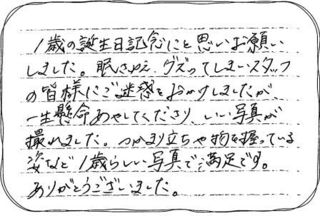 1歳の誕生日記念にと思いお願い
しました。眠さゆえ、グズってしまいスタッフ
の皆様にご迷惑をおかけしましたが、
一生懸命あやしてくださり、いい写真が
撮れました。つかまり立ちや物を握っている
姿など1歳らしい写真で満足です。
ありがとうございました。